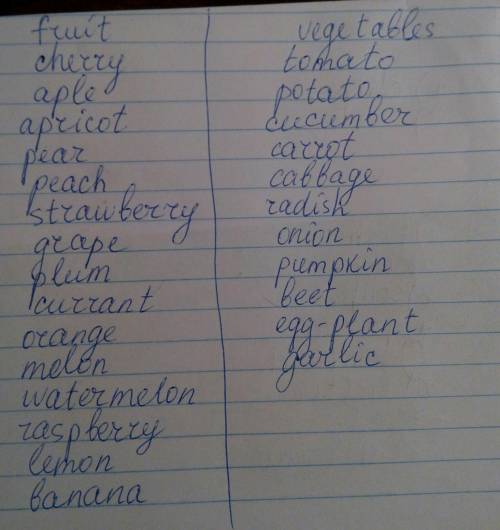 fruit
cherry
aple
apricot
pear
peach
strawberry
grape
plum
currant
orange
melon
watermelon
raspberry
lemon
banana
vegetables
tomato
potato
cucumber
carrot
cabbage
radish
onion
pumpkin
beet
egg-plant
garlic